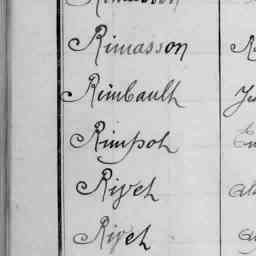 Rimasson
Rimbault
Rimpot
Rivet
Rivet